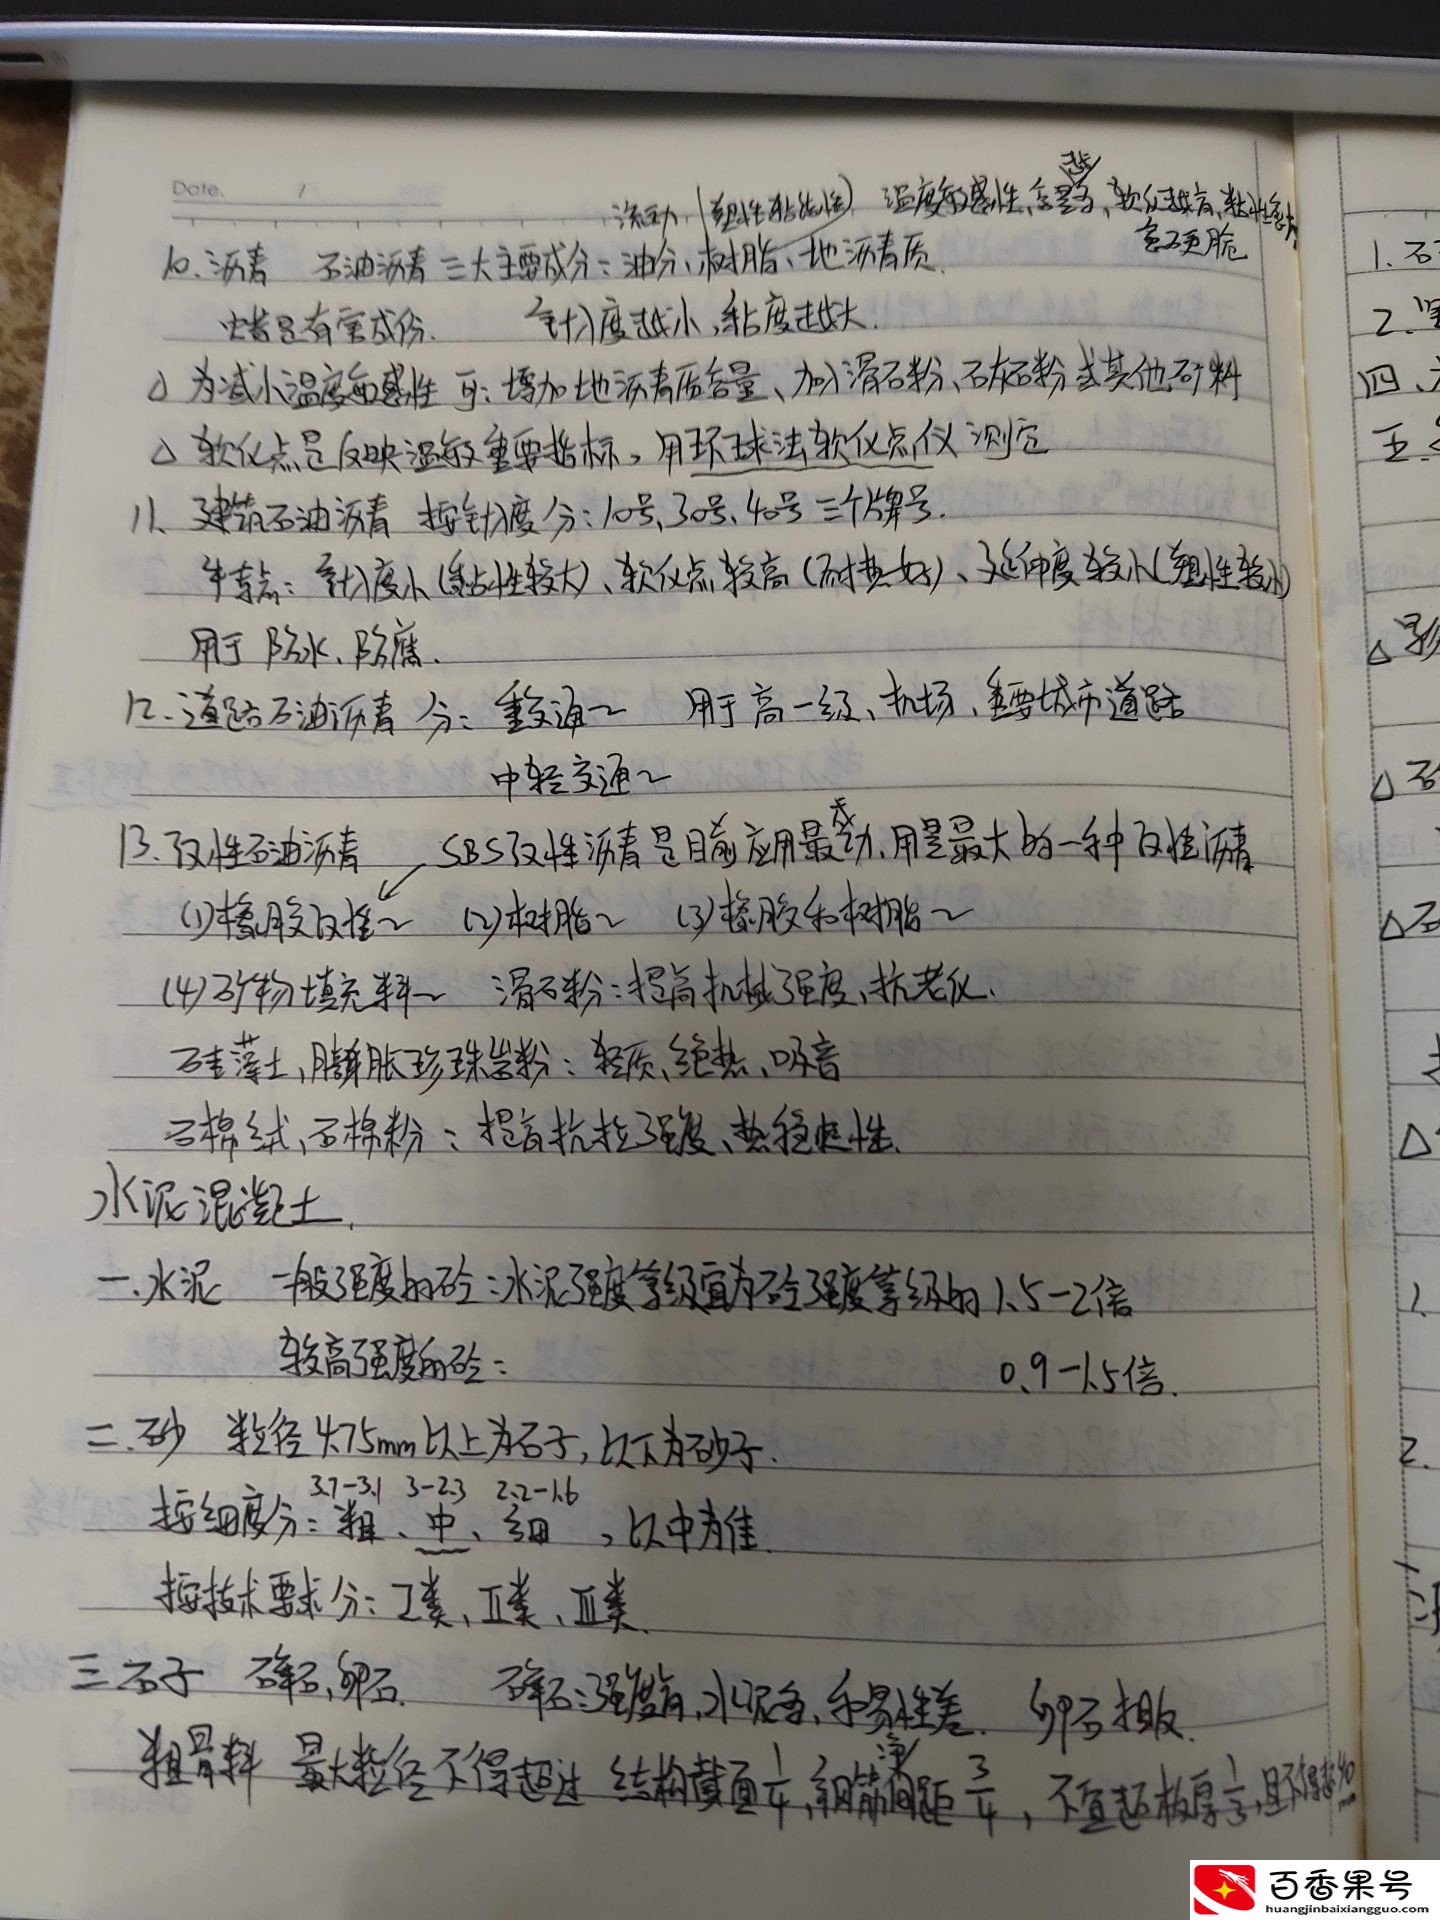 Date. /
流动 (塑性粘结性) 温度敏感性、含量多, 软化越高, 粘性愈大
越
愈硬更脆
10. 沥青 石油沥青三大主要成分：油分、树脂、地沥青质.
蜡是有害成份. 针入度越小,粘度越大.
△ 为减小温度敏感性 可：增加地沥青质含量、加入滑石粉、石灰石粉或其他矿料
△ 软化点是反映温敏重要指标，用环球法软化点仪测定
11. 建筑石油沥青 按针入度分：10号、30号、40号三个牌号.
特点：针入度小(粘性较大)、软化点较高(耐热好)、延伸度较小(塑性较小)
用于防水、防腐.
12. 道路石油沥青 分：重交通～ 用于高一级、机场、重要城市道路
中轻交通～
13. 改性石油沥青 SBS改性沥青是目前应用最成功、用量最大的一种改性沥青
(1)橡胶改性～ (2)树脂～ (3)橡胶和树脂～
(4)矿物填充料～ 滑石粉：提高机械强度、抗老化.
硅藻土、膨胀珍珠岩粉：轻质、绝热、吸音
石棉绒、石棉粉：提高抗拉强度、热稳定性.
水泥混凝土.
一. 水泥 一般强度的砼：水泥强度等级宜为砼强度等级的1.5-2倍
较高强度的砼： 0.9-1.5倍.
二. 砂 粒径4.75mm以上为石子，以下为砂子.
3.7-3.1 3-2.3 2.2-1.6
按细度分：粗、中、细，以中为佳.
按技术要求分：I类、II类、III类.
三. 石子 碎石、卵石. 碎石：强度高、水泥多，和易性差. 卵石相反.
净
粗骨料 最大粒径不得超过 结构截面1/4,钢筋间距3/4，不宜超板厚1/3,且不得超40mm
1. 石
2. 坚
四、
五、
△
△ 石
△ 石
△
1.
2.
百香果号
huangjinbaixiangguo.com